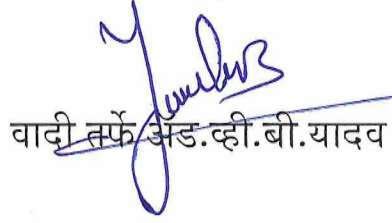 वादी तर्फे अॅड.व्ही.बी.यादव